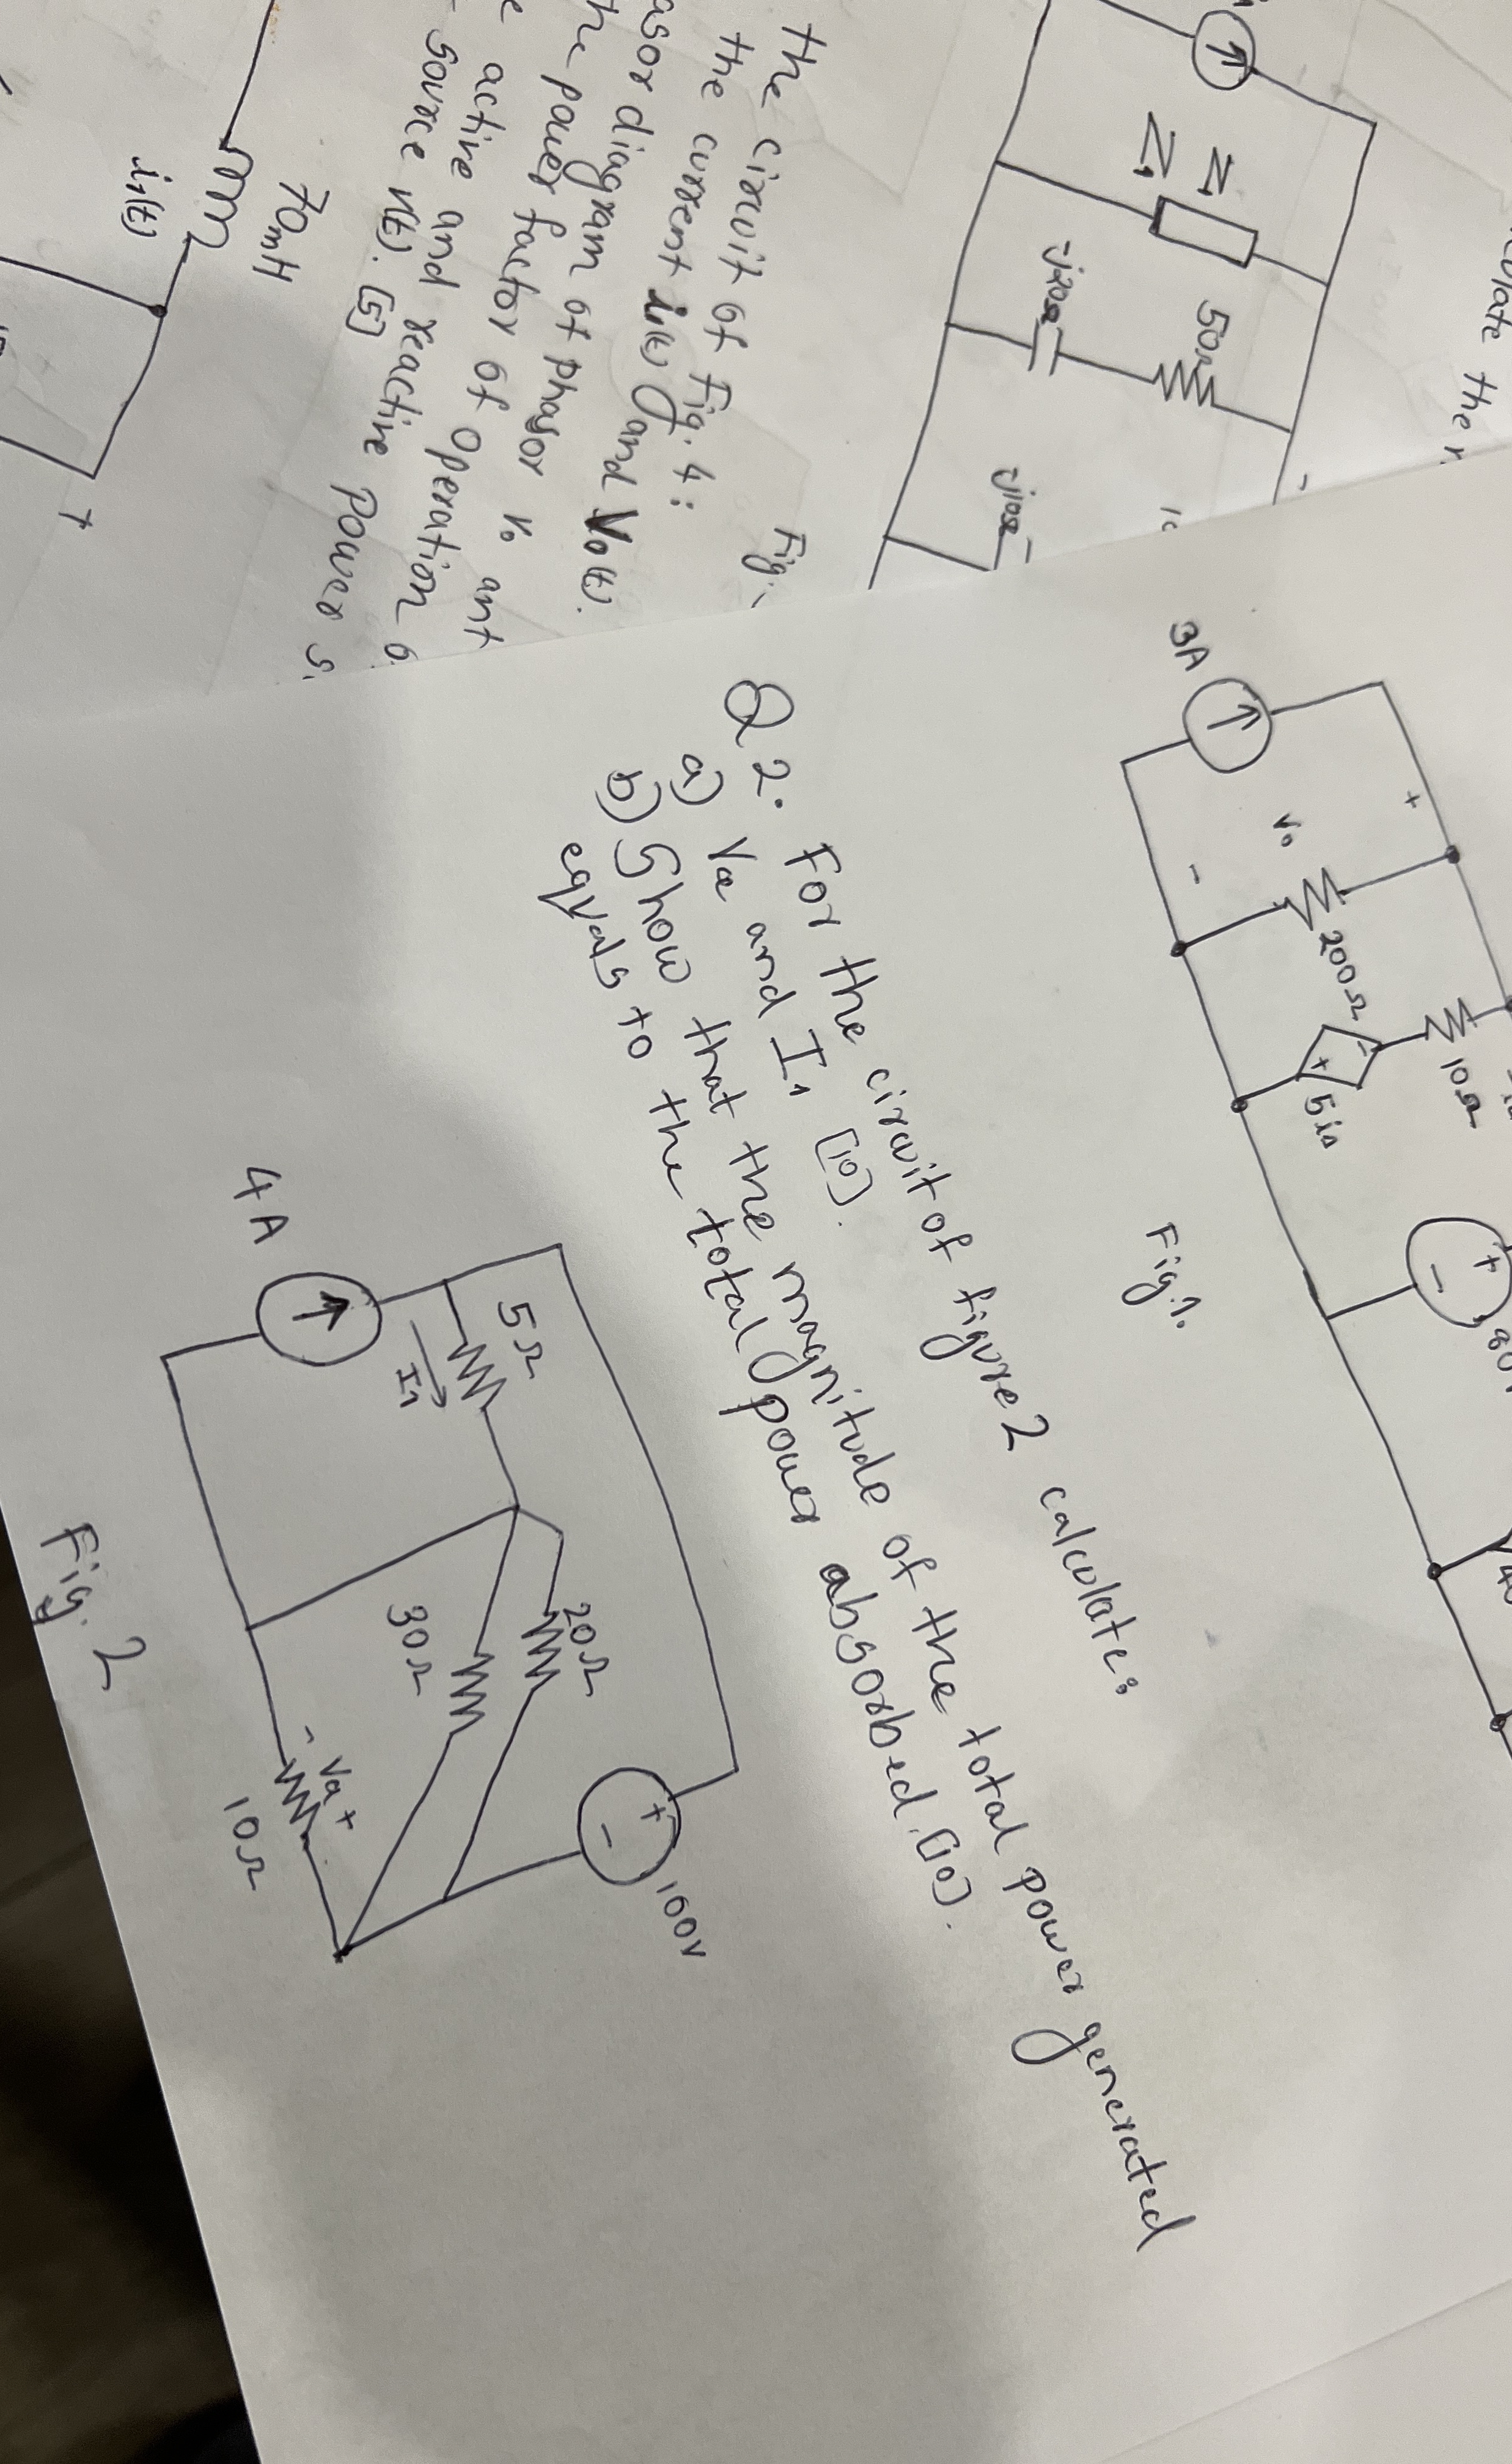 culate the
Z1
50Ω
-j20Ω
-j10Ω
Fig.
the circuit of Fig. 4:
the current i1(t) and Vo(t).
asor diagram of phasor Vo ant
the power factor of operation o
active and reactive powers s
source V(t). [5]
70mH
i1(t)
+
3A
+
Vo
-
200Ω
10Ω
-
+
5io
+
-
Fig. 1.
Q 2. For the circuit of figure 2 calculate:
a) Va and I1 [10].
b) Show that the magnitude of the total power generated
equals to the total power absorbed. [10].
4 A
5Ω
I1
20Ω
30Ω
- Va +
10Ω
+
-
100V
Fig. 2